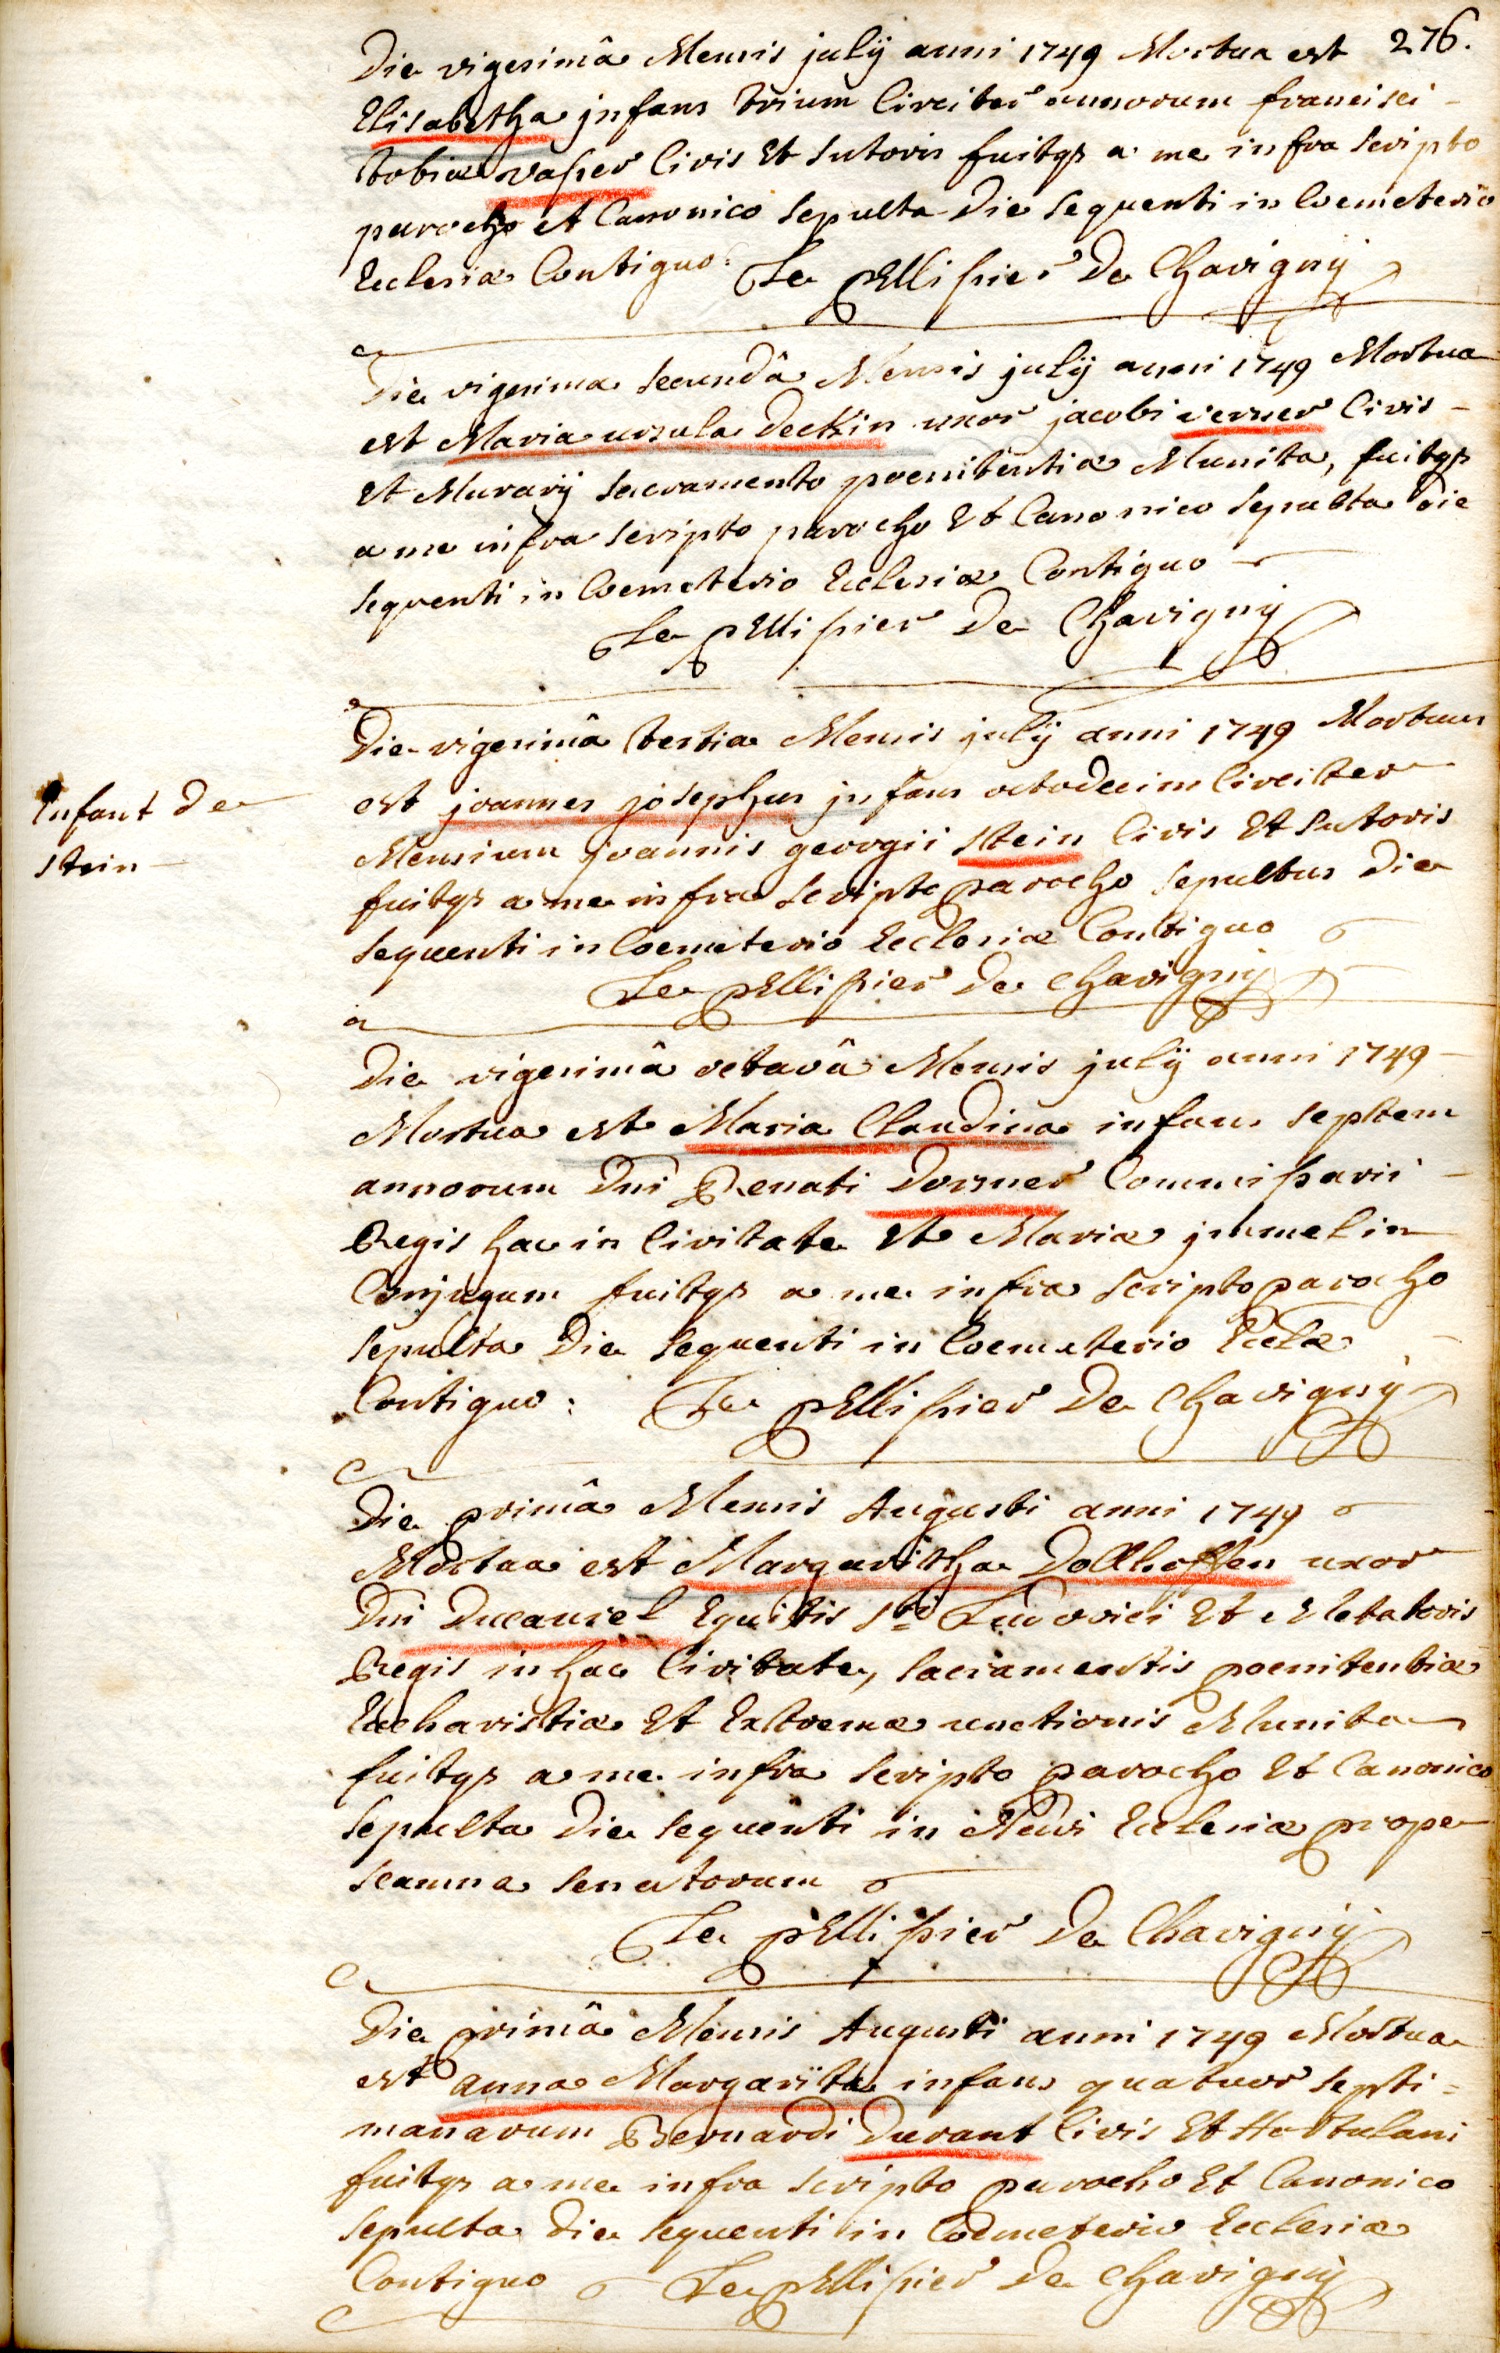 276.
Die vigesimâ Mensis julÿ anni 1749 Mortua est
Elisabetha jnfans trium Circiter annorum francisci
tobiæ vasser Civis Et Sutoris fuitqз a me infra scripto
parocho et Canonico Sepulta Die Sequenti in Coemeterio
Ecclesiæ Contiguo. Le pEllissier De Chavignÿ
Die vigesima secundâ Mensis julÿ anni 1749 Mortua
est Maria ursula Deckin uxor jacobi verner Civis
et Murarÿ sacramento poenitentiæ Munita, fuitqз
a me infra scripto parocho Et Canonico Sepulta Die
sequenti in Coemeterio Ecclesiæ Contiguo
Le pEllissier De Chavignÿ
Die vigesimâ tertia Mensis julÿ anni 1749 Mortuus
est joannes josephus jnfans octodecim Circiter
Mensium joannis georgii Stein Civis Et Sutoris
fuitqз a me infra scripto parocho sepultus Die
sequenti in Coemeterio Ecclesiæ Contiguo
Le pEllissier De Chavignÿ
Enfant De
Stein
Die vigesimâ octavâ Mensis julÿ anni 1749
Mortua est Maria Claudina infans septem
annorum Dni Renati Dorsner Commissarii
Regis hac in Civitate Et Mariæ
Conjugum fuitqз a me infra scripto parocho
Sepulta Die Sequenti in Coemeterio Eccle
Contiguo: Le pEllissier De Chavignÿ
Die primâ Mensis Augusti anni 1749
Mortua est Margaritha Dollhoffen uxor
Dni Ducaurel Equitis Sti Ludovici Et Metatoris
Regis in hac Civitate, sacramentis poenitentiæ
Eucharistiæ Et Extremæ unctionis Munita
fuitqз a me infra scripto parocho Et Canonico
Sepulta Die Sequenti in Navi Ecclesiæ prope
scamna senatorum
Le pEllissier De Chavignÿ
Die primâ Mensis Augusti anni 1749 Mortua
est anna Margarita infans quatuor septi=
manarum Bernardi Durant Civis Et Hortulani
fuitqз a me infra scripto parocho Et Canonico
Sepulta Die sequenti in Coemeterio Ecclesiæ
Contiguo Le pEllissier De Chavignÿ